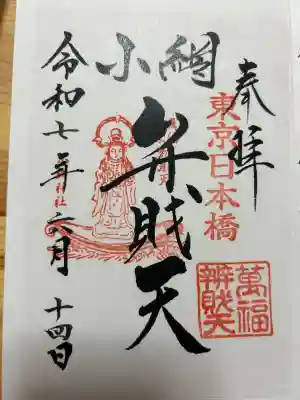 奉拝
東京日本橋
小網
弁財天
萬福
辨財天
令和七年六月十四日